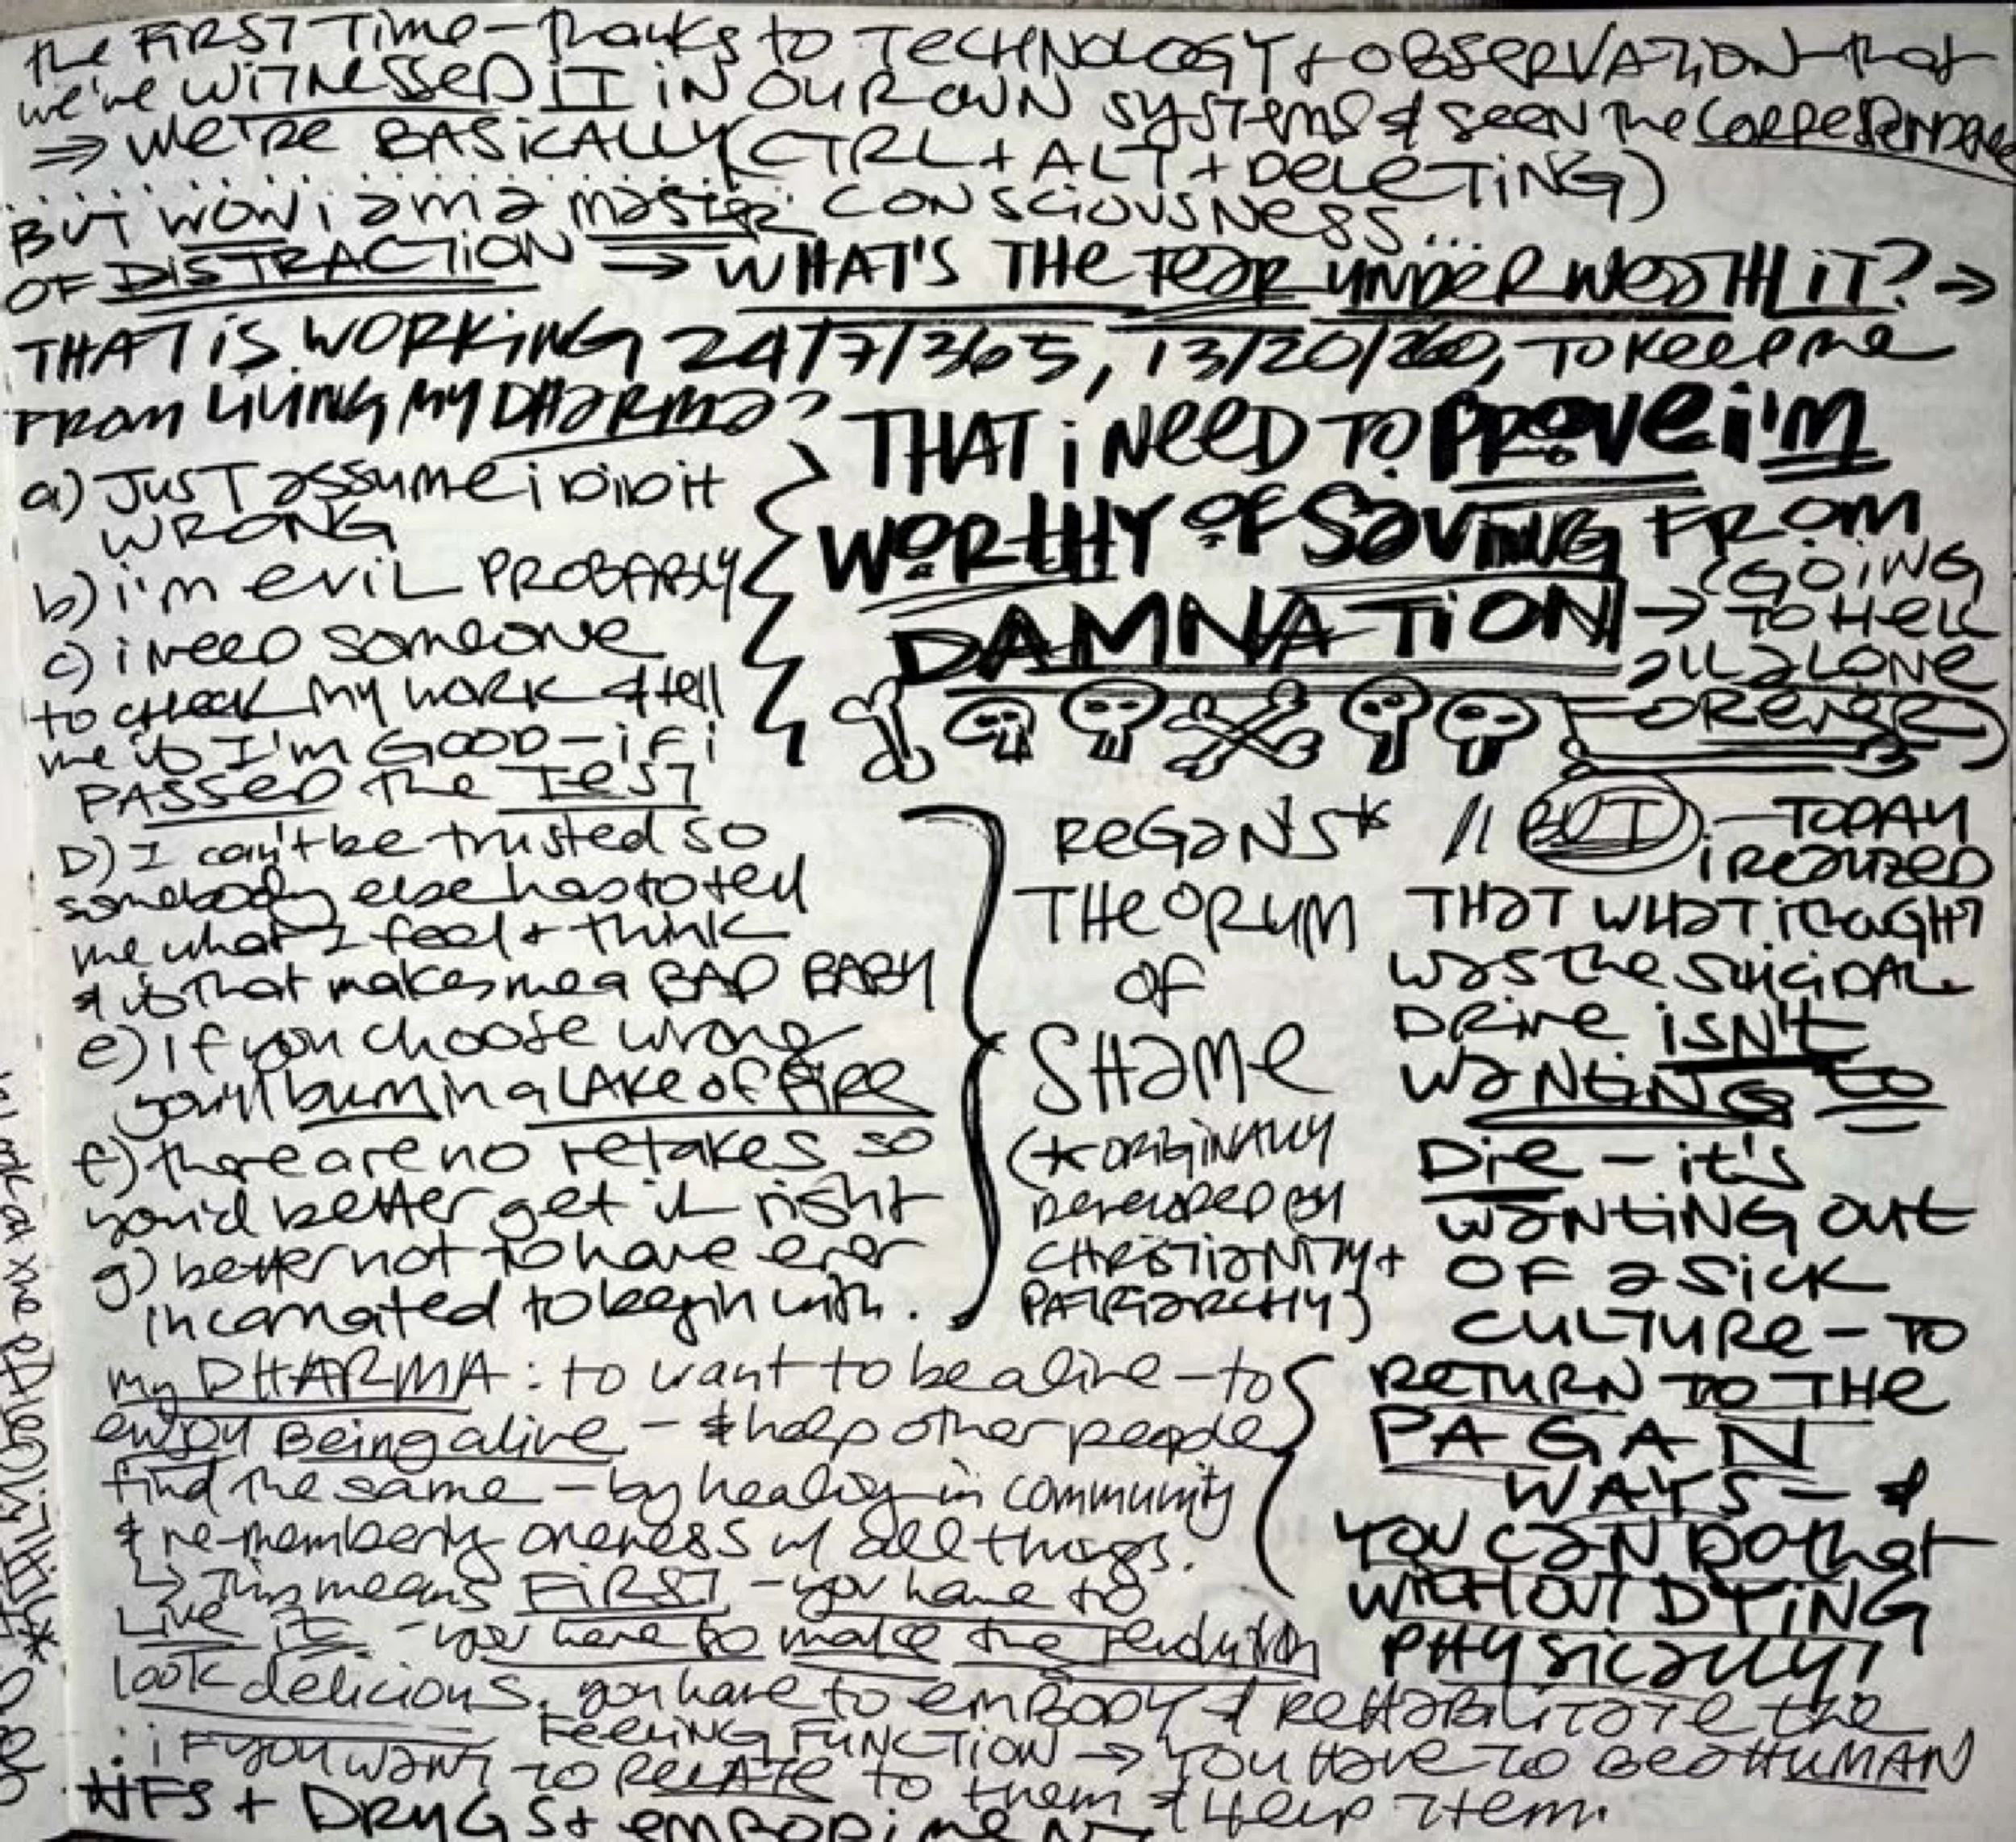 the FIRST Time - thanks to TECHNOLOGY + OBSERVATION - that
we're WITNESSED IT IN OUR OWN systems & seen the CORRESPONDENCE
⇒ We're BASICALLY (CTRL + ALT + DELETING)
CONSCIOUSNESS...
BUT wow i am a master
OF DISTRACTION ⇒ WHAT'S THE fear UNDERNEATH IT? →
THAT IS WORKING 24/7/365, 13/20/260, TO KEEP me
FROM LIVING MY DHARMA?
a) JUST assume i DID it
WRONG
b) i'm eviL PROBABLY
c) i need someone
to check my work & tell
me if I'm GOOD - if i
PASSED the TEST
D) I can't be trusted so
somebody else has to tell
me what I feel + think
& if that makes me a BAD BABY
e) if you choose wrong
you'll burn in a LAKE of FIRE
f) there are no retakes so
you'd better get it right
g) better not to have ever
incarnated to begin with.
THAT i NEED TO PROVE i'm
WORTHY OF SAVING FROM
DAMNATION →
(GOING
TO HELL
all aLONE
FOREVER)
REGaN'S*
THEORUM
OF
SHAME
(* ORIGINALLY
DEVELOPED BY
CHRISTIANITY +
PATRIARCHY)
// BUT - TODAY
i REALIZED
THAT WHAT i THOUGHT
was the SUICIDAL
DRIVE ISN'T
WANTING TO
Die - it's
WANTING OUT
OF a SICK
CULTURE - TO
RETURN TO THE
PAGAN
WAYS - &
YOU CAN DO that
WITHOUT DYING
PHYSICALLY!
my DHARMA: to want to be alive - to
enjoy Being alive - & help other people
find the same - by healing in community
& re-membering oneness w/ all things.
↳ This means FIRST - you have to
Live it - you have to make the revolution
look delicious. you have to EMBODY & REHABILITATE the
FEELING FUNCTION → YOU HAVE TO BE a HUMAN
∴ iF you WANT TO RELATE to them & HELP them.
+ DRUGS + EMBODIMENT